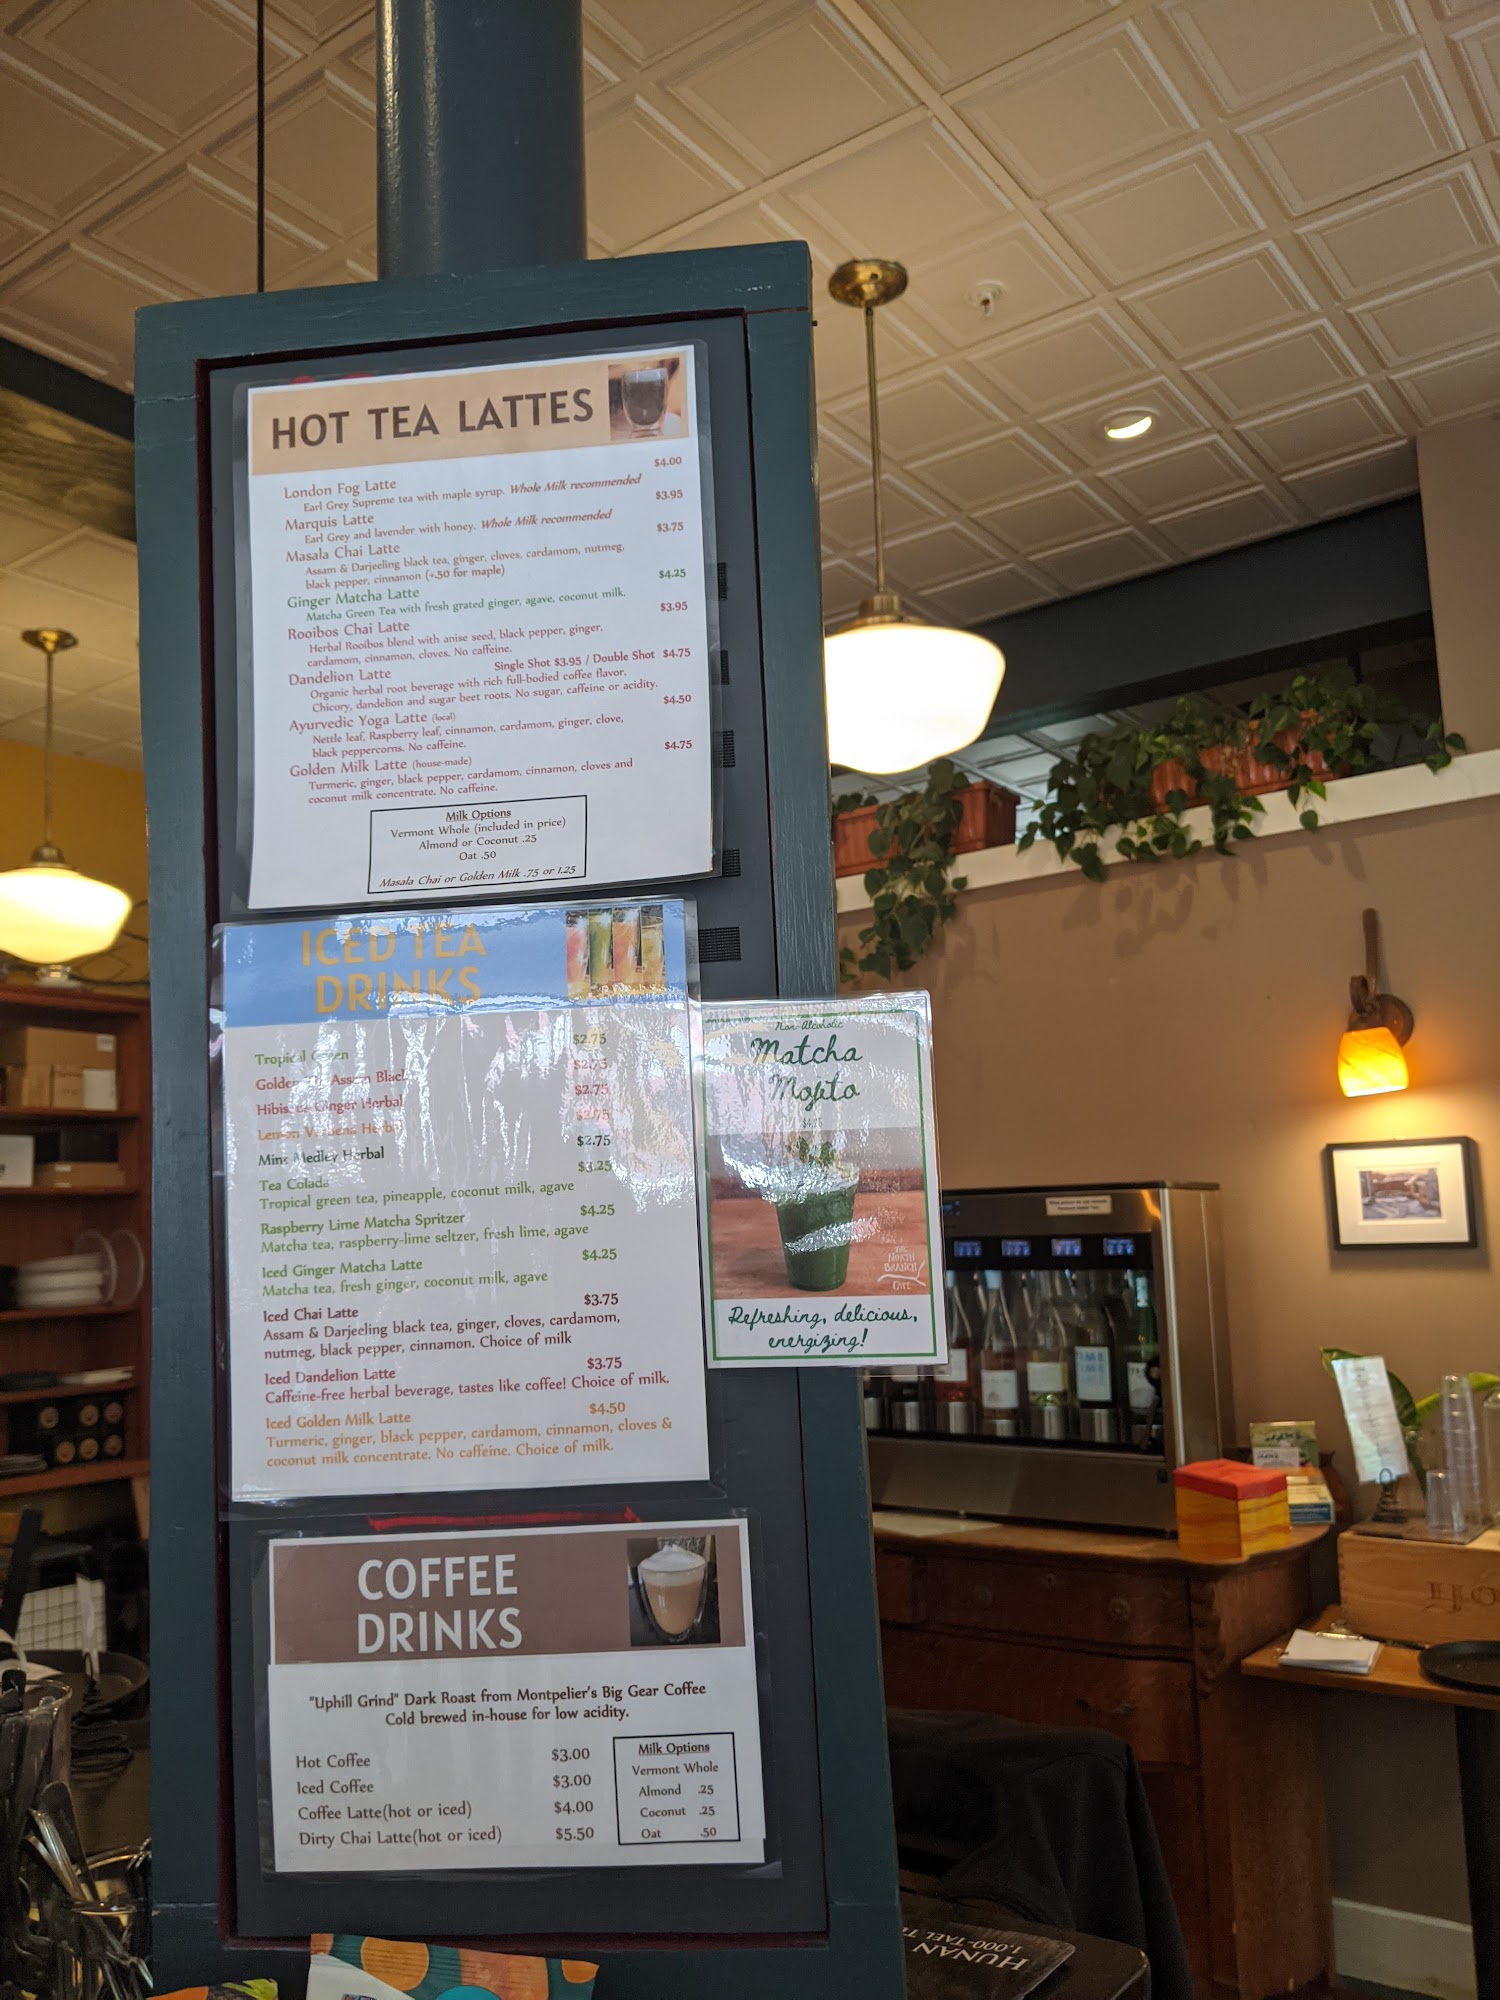 HOT TEA LATTES
$4.00
London Fog Latte
Earl Grey Supreme tea with maple syrup. Whole Milk recommended
$3.95
Marquis Latte
Earl Grey and lavender with honey. Whole Milk recommended
$3.75
Masala Chai Latte
Assam & Darjeeling black tea, ginger, cloves, cardamom, nutmeg,
black pepper, cinnamon (+.50 for maple)
$4.25
Ginger Matcha Latte
Matcha Green Tea with fresh grated ginger, agave, coconut milk.
$3.95
Rooibos Chai Latte
Herbal Rooibos blend with anise seed, black pepper, ginger,
cardamom, cinnamon, cloves. No caffeine.
Single Shot $3.95 / Double Shot $4.75
Dandelion Latte
Organic herbal root beverage with rich full-bodied coffee flavor.
Chicory, dandelion and sugar beet roots. No sugar, caffeine or acidity.
$4.50
Ayurvedic Yoga Latte (local)
Nettle leaf, Raspberry leaf, cinnamon, cardamom, ginger, clove,
black peppercorns. No caffeine.
$4.75
Golden Milk Latte (house-made)
Turmeric, ginger, black pepper, cardamom, cinnamon, cloves and
coconut milk concentrate. No caffeine.
Milk Options
Vermont Whole (included in price)
Almond or Coconut .25
Oat .50
Masala Chai or Golden Milk .75 or 1.25
ICED TEA
DRINKS
Tropical Green $2.75
Golden Assam Black $2.75
Hibiscus Ginger Herbal $2.75
Lemon Verbena Herbal $2.75
Mint Medley Herbal $2.75
Tea Colada $3.25
Tropical green tea, pineapple, coconut milk, agave
Raspberry Lime Matcha Spritzer $4.25
Matcha tea, raspberry-lime seltzer, fresh lime, agave
Iced Ginger Matcha Latte $4.25
Matcha tea, fresh ginger, coconut milk, agave
Iced Chai Latte $3.75
Assam & Darjeeling black tea, ginger, cloves, cardamom,
nutmeg, black pepper, cinnamon. Choice of milk
Iced Dandelion Latte $3.75
Caffeine-free herbal beverage, tastes like coffee! Choice of milk.
Iced Golden Milk Latte $4.50
Turmeric, ginger, black pepper, cardamom, cinnamon, cloves &
coconut milk concentrate. No caffeine. Choice of milk.
Non-Alcoholic
Matcha
Mojito
THE
NORTH
BRANCH
CAFE
Refreshing, delicious,
energizing!
COFFEE
DRINKS
"Uphill Grind" Dark Roast from Montpelier's Big Gear Coffee
Cold brewed in-house for low acidity.
Hot Coffee $3.00
Iced Coffee $3.00
Coffee Latte(hot or iced) $4.00
Dirty Chai Latte(hot or iced) $5.50
Milk Options
Vermont Whole
Almond .25
Coconut .25
Oat .50
HUNAN
1,000-TAEL